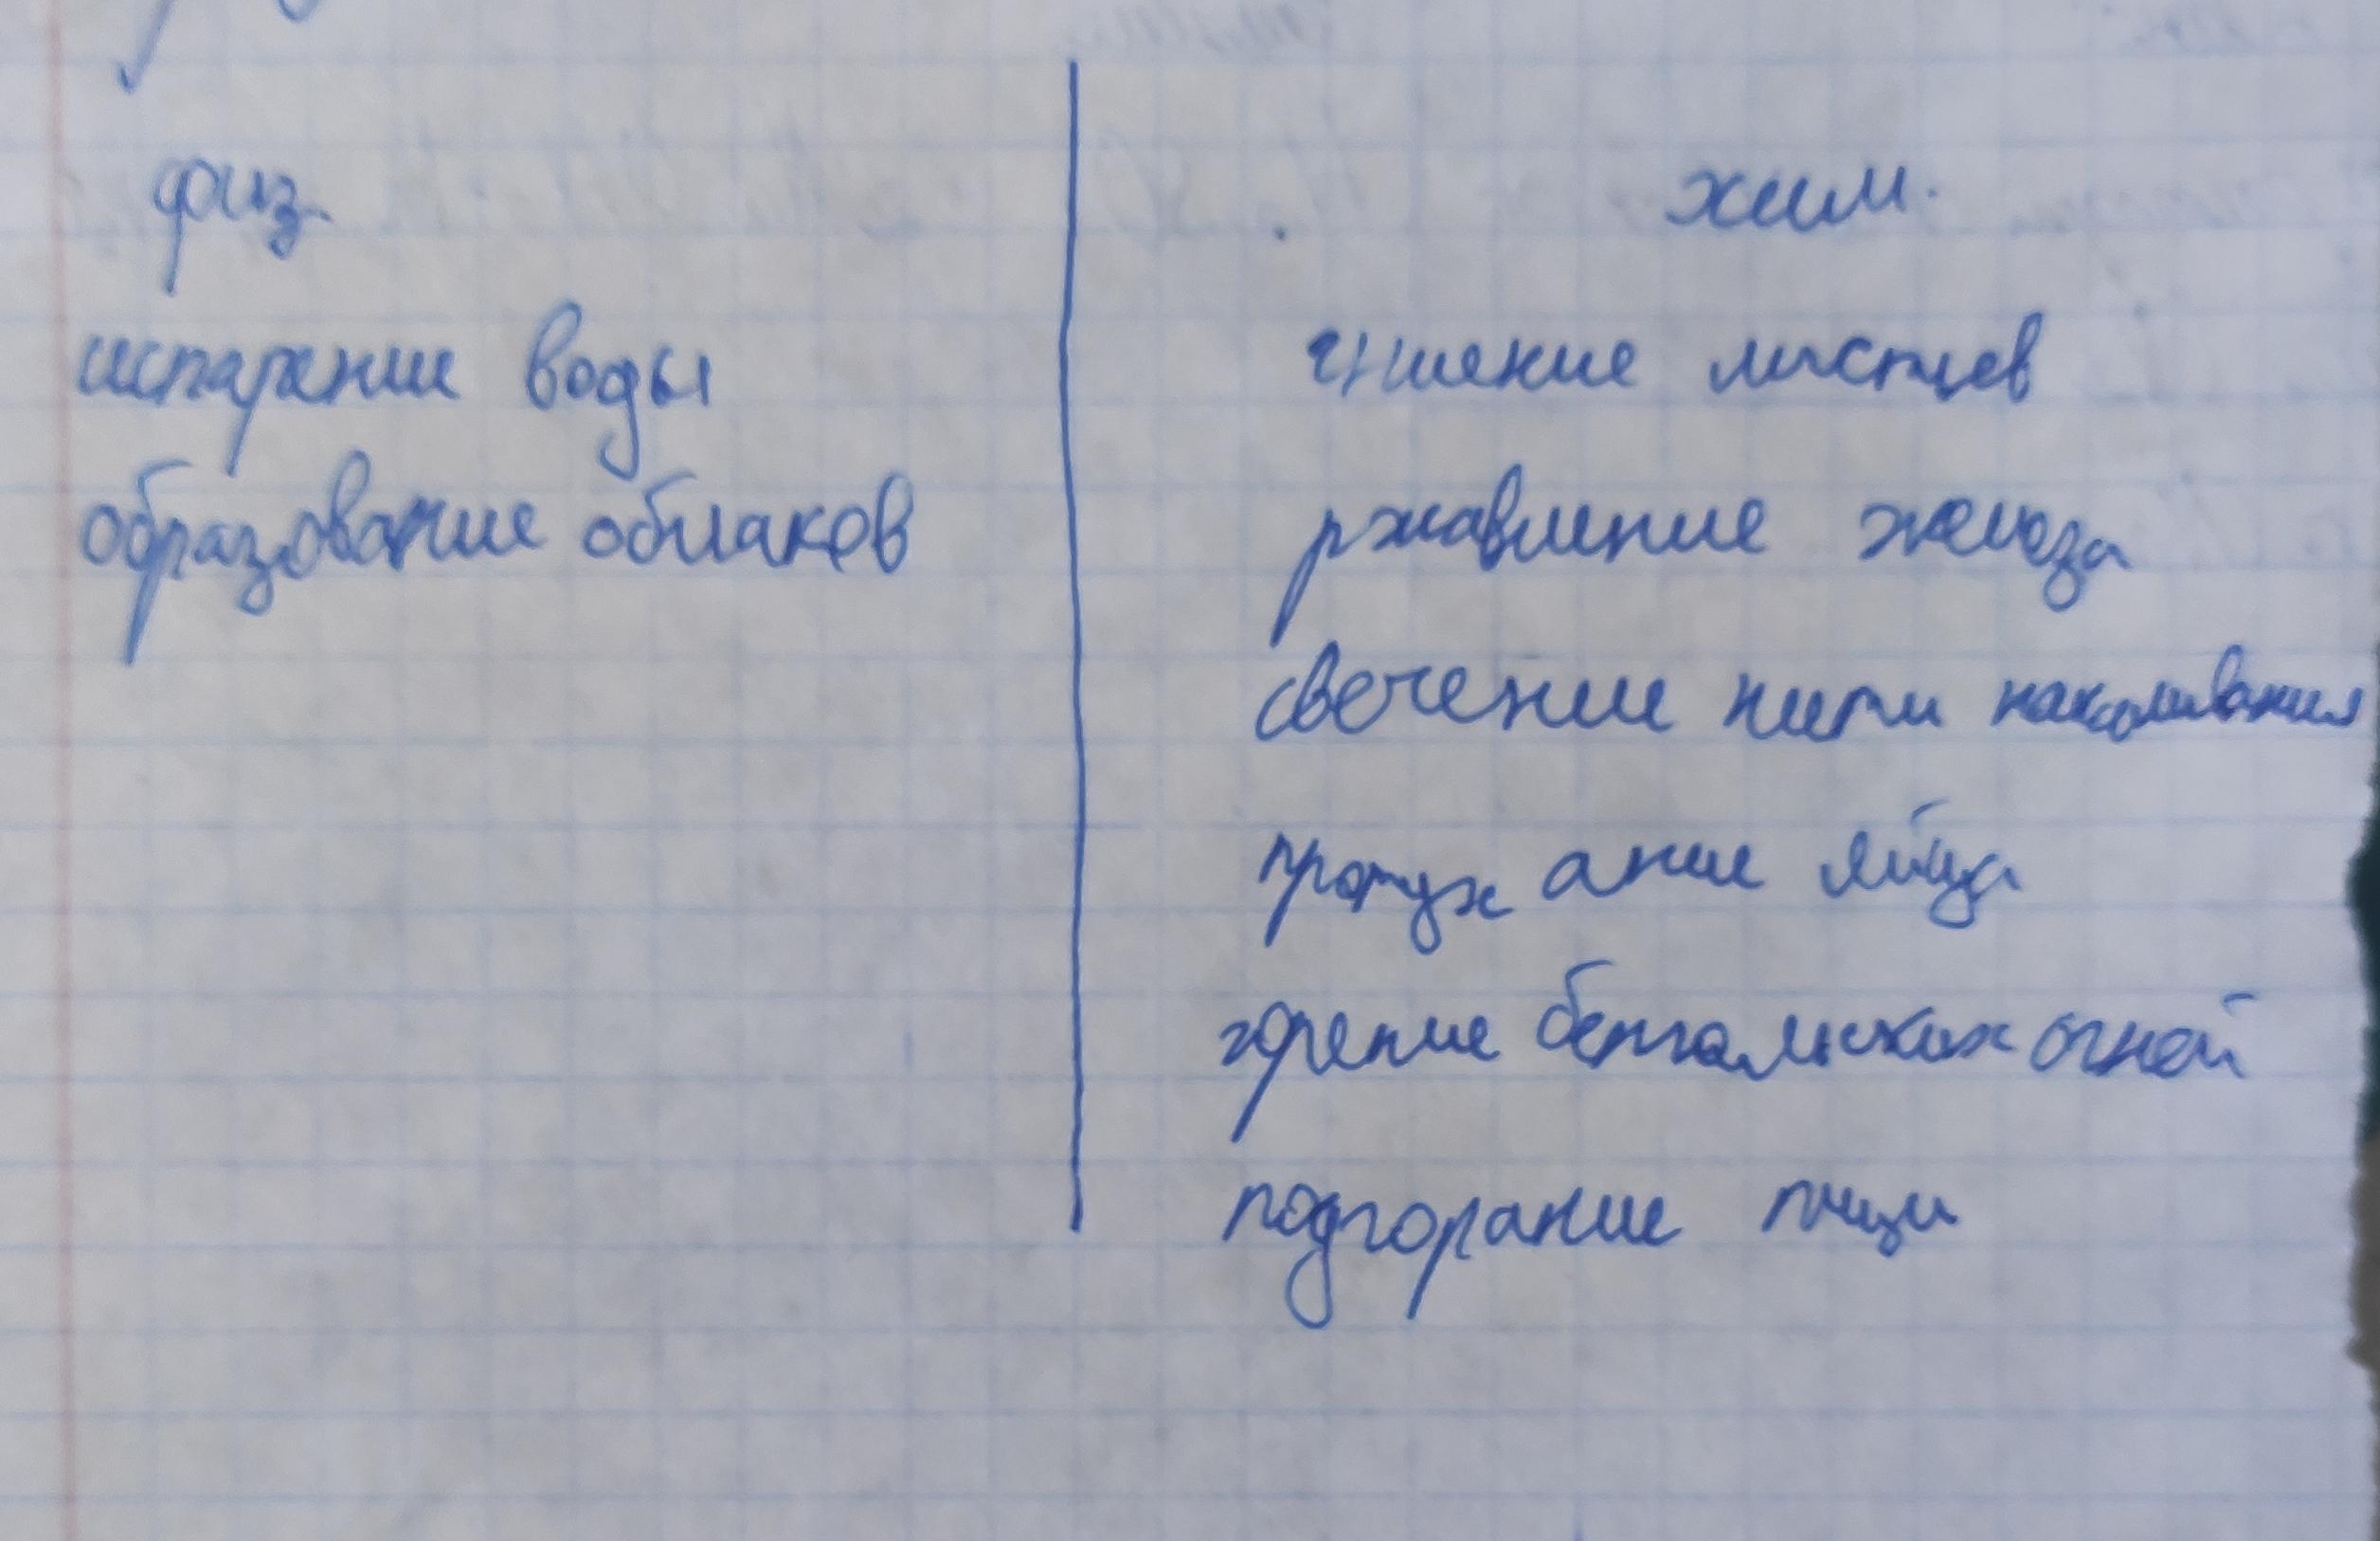 физ.
испарение воды
образование облаков
хим.
гниение листьев
ржавление железа
свечение нити накаливания
протухание яйца
горение бенгальских огней
подгорание пищи